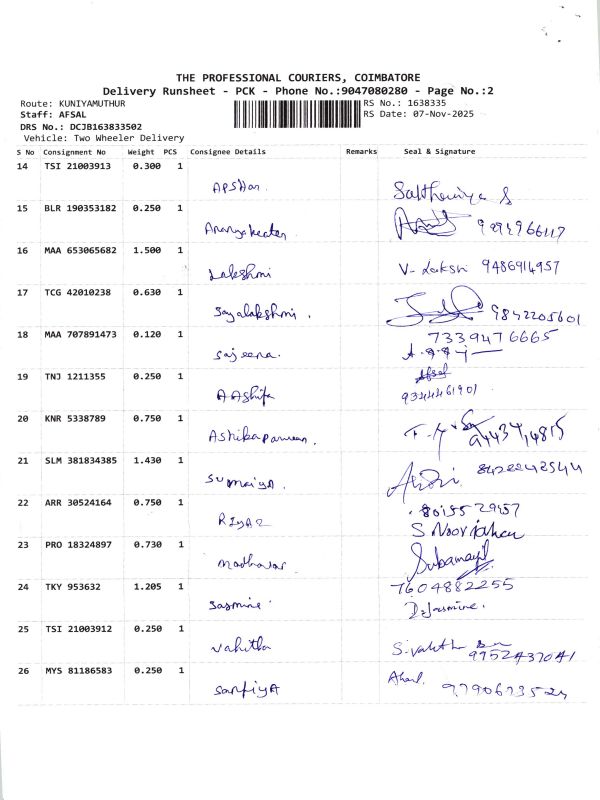 THE PROFESSIONAL COURIERS, COIMBATORE
Delivery Runsheet - PCK - Phone No.:9047080280 - Page No.:2
Route: KUNIYAMUTHUR
RS No.: 1638335
Staff: AFSAL
RS Date: 07-Nov-2025
DRS No.: DCJB163833502
Vehicle: Two Wheeler Delivery
S No Consignment No Weight PCS Consignee Details Remarks Seal & Signature
14 TSI 21003913 0.300 1
Apshar.
15 BLR 190353182 0.250 1
16 MAA 653065682 1.500 1
Lakshmi V- Laksri 9486914957
17 TCG 42010238 0.630 1
Jayalakshmi. 9842205601
18 MAA 707891473 0.120 1
7339476665
Sajeena.
19 TNJ 1211355 0.250 1
Afsal
AAshifa 9344461901
20 KNR 5338789 0.750 1
Ashikaparveen.
21 SLM 381834385 1.430 1
Sumaiya.
22 ARR 30524164 0.750 1
Riyaz S Noorjahan
23 PRO 18324897 0.730 1
Madhavan
24 TKY 953632 1.205 1
7604882255
Jasmine D.Jasmine.
25 TSI 21003912 0.250 1
Vahitha
9952437041
26 MYS 81186583 0.250 1
Sanfiya